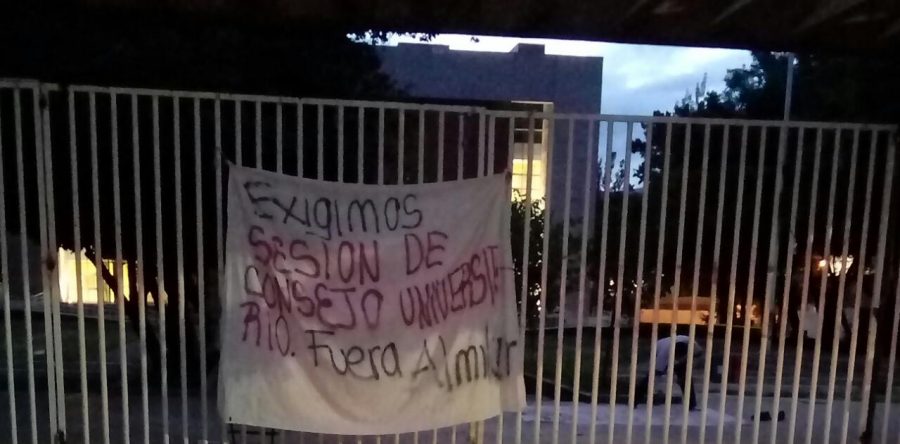 Exigimos
SESION DE
CONSEJO UNIVERSIT
ARIO. Fuera Almilcar